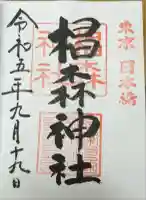 東京 日本橋
椙森神社
令和五年九月十九日